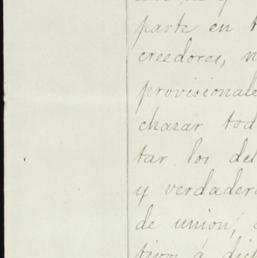 parte en
creedores,
provisionale
chazar tod
tar los de
y verdader
de union,
tivos á di